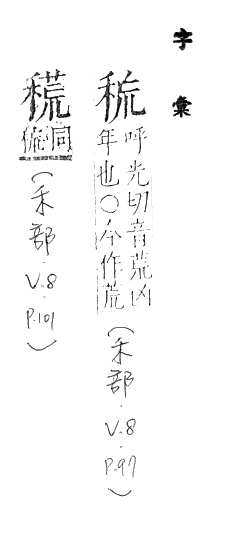 字彙
呼光切音荒凶
年也○今作荒
(禾部.V.8.P.97)
䅣
同
(禾部.V.8.P.101)